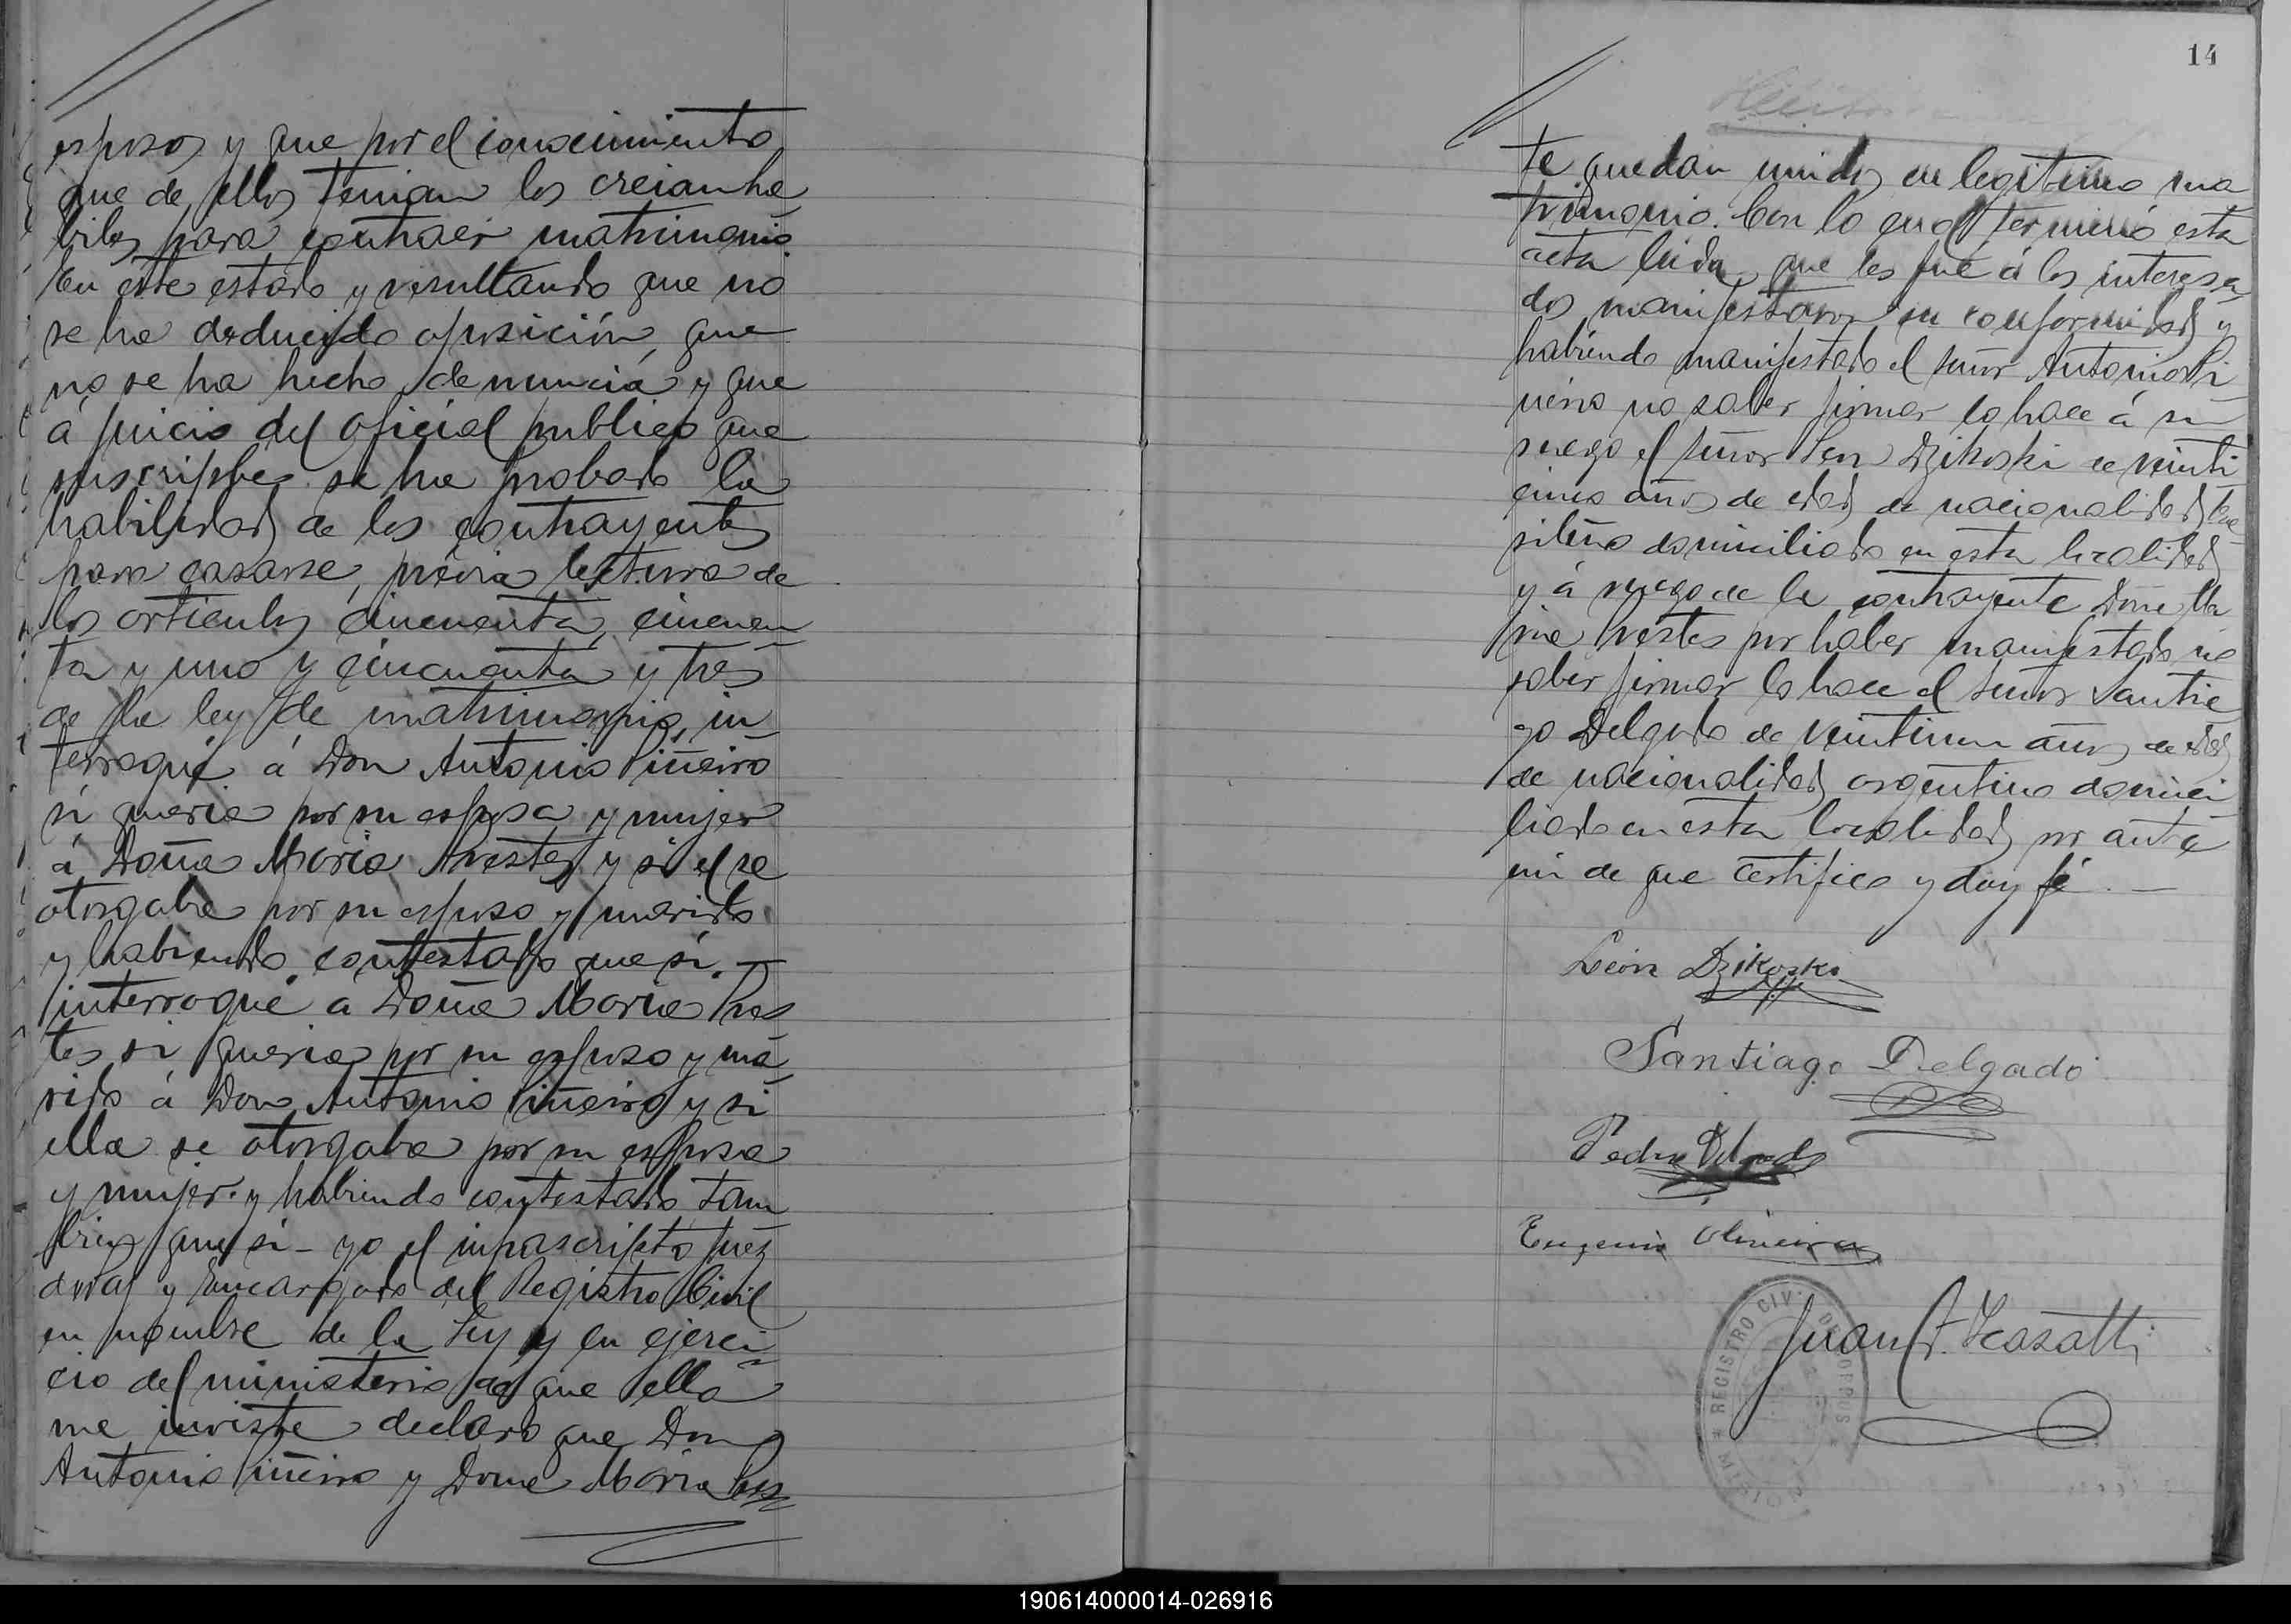 esposos y que por el conocimiento
que de ellos tenian los creian ha
biles para contraer matrimonio.
En este estado y resultando que no
se ha deducido oposición, que
no se ha hecho denuncia y que
á juicio del oficial publico que
suscripbe se ha probado la
habilidad de los contrayentes
para casarse, prévia lectura de
los articulos cincuenta, cincuen
ta y uno y cincuenta y tres
de la ley de matrimonio, in
terrogué á Don Antonio Piñeiro
si queria por su esposa y mujer
á Doña Maria Prestes y si el se
otorgaba por su esposo y marido
y habiendo contestado que si. —
interrogué a Doña Maria Pres
tes si queria por su esposo y ma
rido á Don Antonio Piñeiro y si
ella se otorgaba por su esposa
y mujer y habiendo contestado tam
bien que si - yo el infrascripto juez
de Paz y Encargado del Registro Civil
en nombre de la Ley y en ejerci
cio del ministerio de que ella
me inviste declaro que Don
Antonio Piñeiro y Doña Maria Pres
14
te quedan unidos en legitimo ma
trimonio. Con lo que terminó esta
acta leida que les fué á los interesa
dos manifestaron su conformidad y
habiendo manifestado el señor Antonio Pi
ñeiro no saber firmar lo hace á su
ruego el señor Leon Dzikoski de veinti
cinco años de edad de nacionalidad bra
sileña domiciliado en esta localidad
y á ruego de la contrayente Doña Ma
ria Prestes por haber manifestado no
saber firmar lo hace el señor Santia
go Delgado de veintiun años de edad
de nacionalidad argentino domici
liado en esta localidad por ante
mi de que certifico y doy fé. —
León Dzikoski
Santiago Delgado
Pedro Delgado
Eugenio Olineira
Juan F. Casatti
REGISTRO CIVIL DE
190614000014-026916